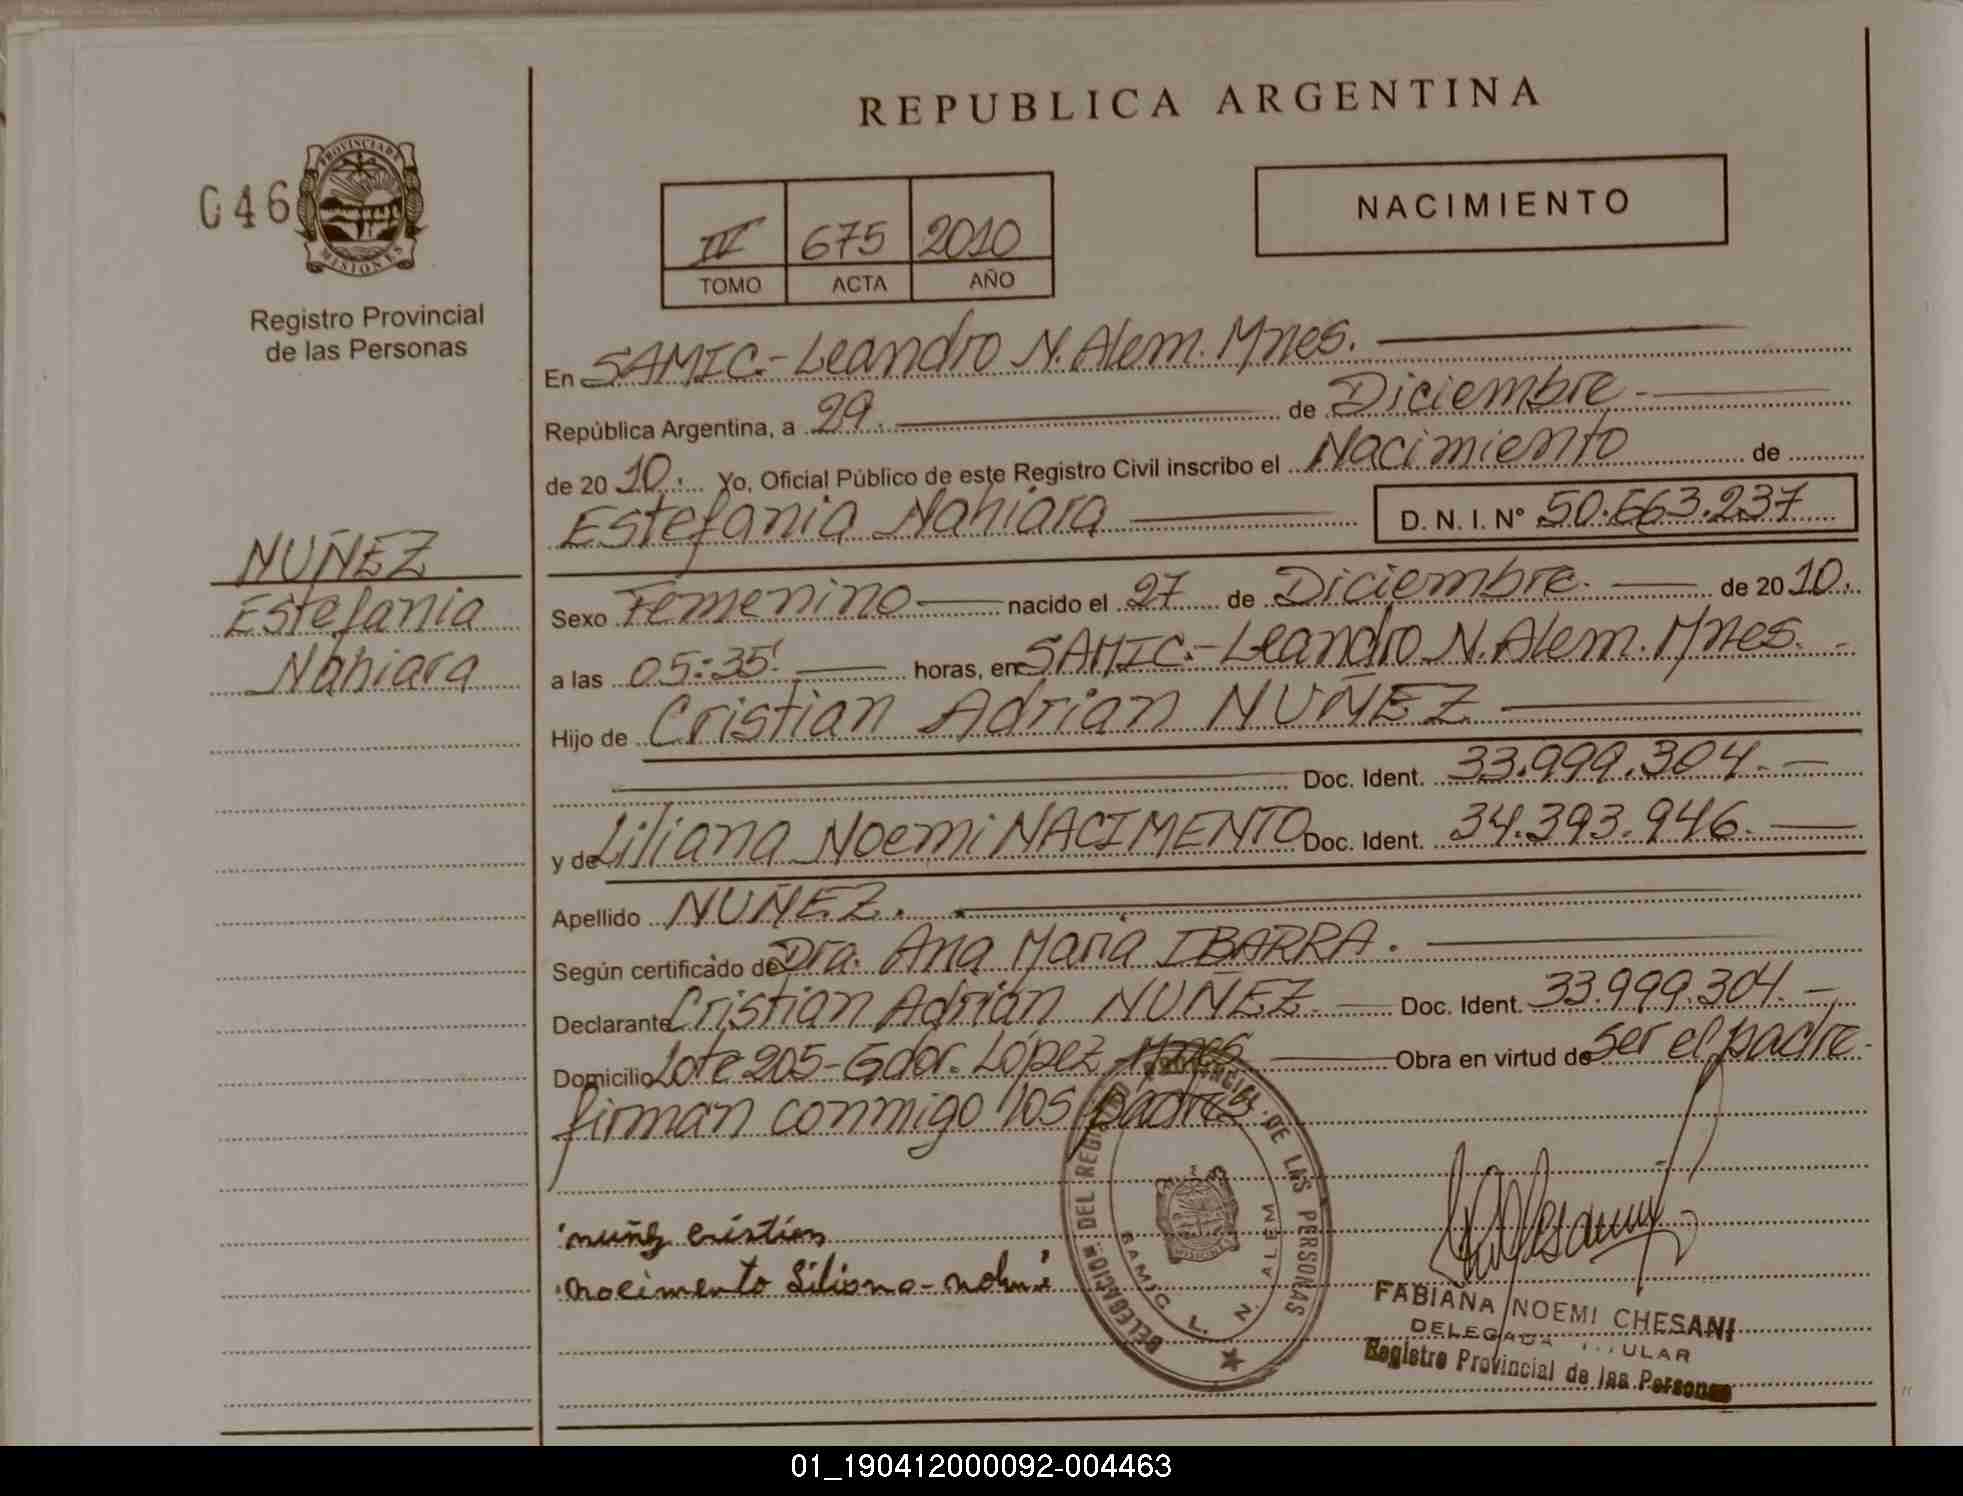 REPUBLICA ARGENTINA
046
PROVINCIA DE
MISIONES
Registro Provincial
de las Personas
NACIMIENTO
IV 675 2010
TOMO ACTA AÑO
En SAMIC.- Leandro N. Alem. Mnes.
República Argentina, a 29. de Diciembre -
de 2010. Yo, Oficial Público de este Registro Civil inscribo el Nacimiento de
Estefania Nahiara D. N. I. N° 50.663.237
NUÑEZ
Estefania
Nahiara
Sexo Femenino nacido el 27 de Diciembre. de 2010.
a las 05:35' horas, en SAMIC.- Leandro N. Alem. Mnes. -
Hijo de Cristian Adrian NUÑEZ
Doc. Ident. 33.999.304. -
y de Liliana Noemi NACIMENTO Doc. Ident. 34.393.946. -
Apellido NUÑEZ.
Según certificado de Dra. Ana Maria IBARRA.
Declarante Cristian Adrian NUÑEZ Doc. Ident. 33.999.304. -
Domicilio Lote 205- Gdor. López Mnes Obra en virtud de ser el padre -
firman conmigo los padres
nuñez cristian
nacimento Liliana - nohmi
DELEGACION DEL REGISTRO PROVINCIAL DE LAS PERSONAS
SAMIC L. N. ALEM
FABIANA NOEMI CHESANI
DELEGADA TITULAR
Registro Provincial de las Personas
01_190412000092-004463